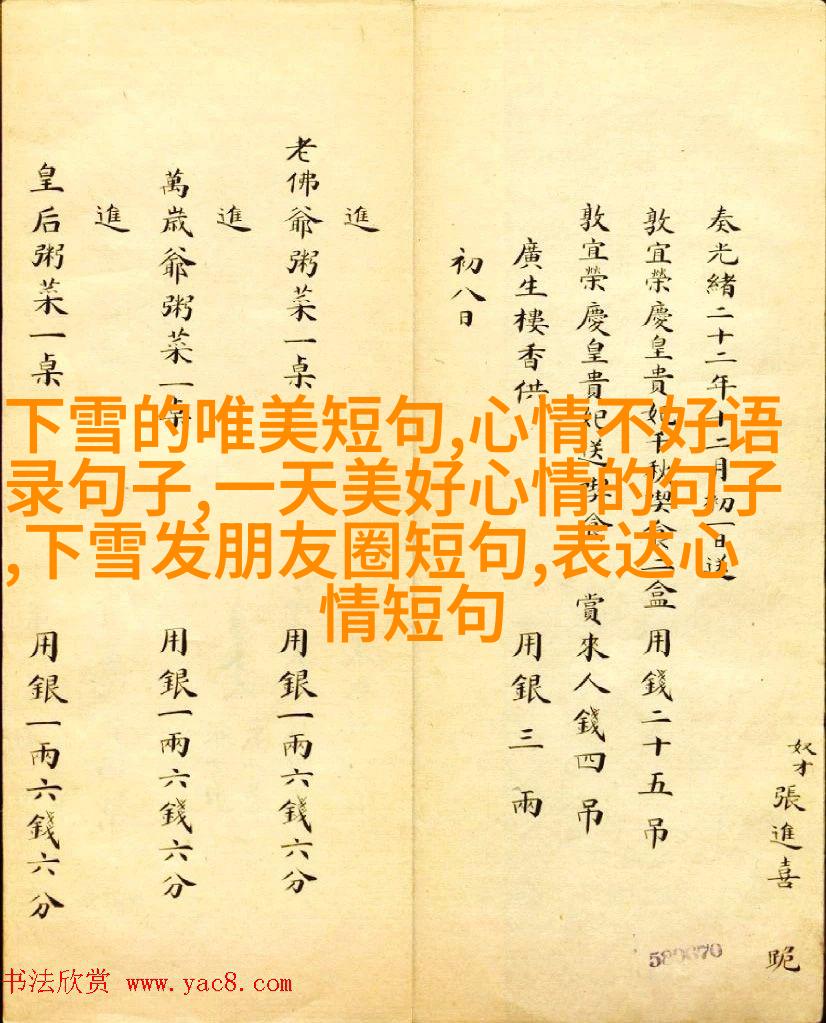 奴才張進喜 跪
奏光緒二十二年十二月初一日送
敦宜榮慶皇貴妃千秋喫食二盒 用錢二十五吊
敦宜榮慶皇貴妃送喫食 賞來人錢四吊
廣生樓香供 用銀三兩
初八日
進
老佛爺粥菜一桌 用銀一兩六錢六分
進
萬歲爺粥菜一桌 用銀一兩六錢六分
進
皇后粥菜一桌 用銀一兩六錢六分
下雪的唯美短句,心情不好语
录句子,一天美好心情的句子
,下雪发朋友圈短句,表达心
情短句
580670
书法欣赏 www.yac8.com